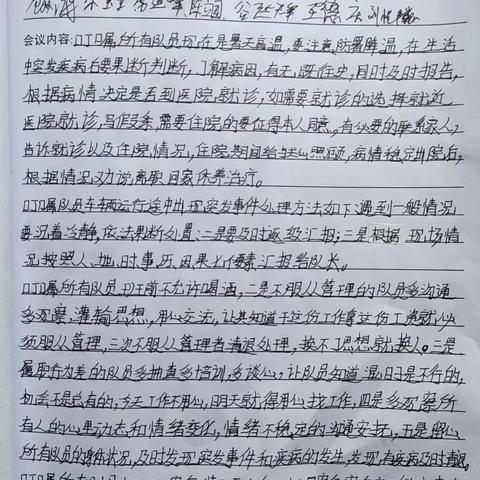 会议内容:叮嘱所有队员现在是暑天高温,要注意防暑降温,在生活
中突发疾病后要果断判断,了解病因,有无既往史,同时及时报告,
根据病情决定是否到医院就诊,如需要就诊的选择就近
医院就诊,需要住院的要征得本人同意,有必要的联系家人,
告诉就诊以及住院情况,住院期间给与照顾,病情稳定出院后,
根据情况劝说离职回家休养治疗。
叮嘱队员车辆运行途中出现突发事件处理方法如下:遇到一般情况
要沉着冷静,依法果断处置:二是要及时逐级汇报;三是根据现场情
况按照人、地、时、事、历、因、果七个要素汇报给队长。
叮嘱所有队员班前不允许喝酒,二是不服从管理的队员多沟通
多观察,灌输思想,用心交流,让其知道干这份工作拿这份工资就必
须服从管理,三次不服从管理者清退处理,换不了思想就换人。三是
履职行为差的队员多抽查多培训,多谈心。让队员知道混日子是不行的,
机会不是总有的,今天工作不用心,明天就得用心找工作,四是多观察所
有人的心里动态和情绪变化,情绪不稳定的沟通安抚,五是留心
所有队员的身体状况,及时发现突发事件和疾病的发生,发现有疾病及时清退,